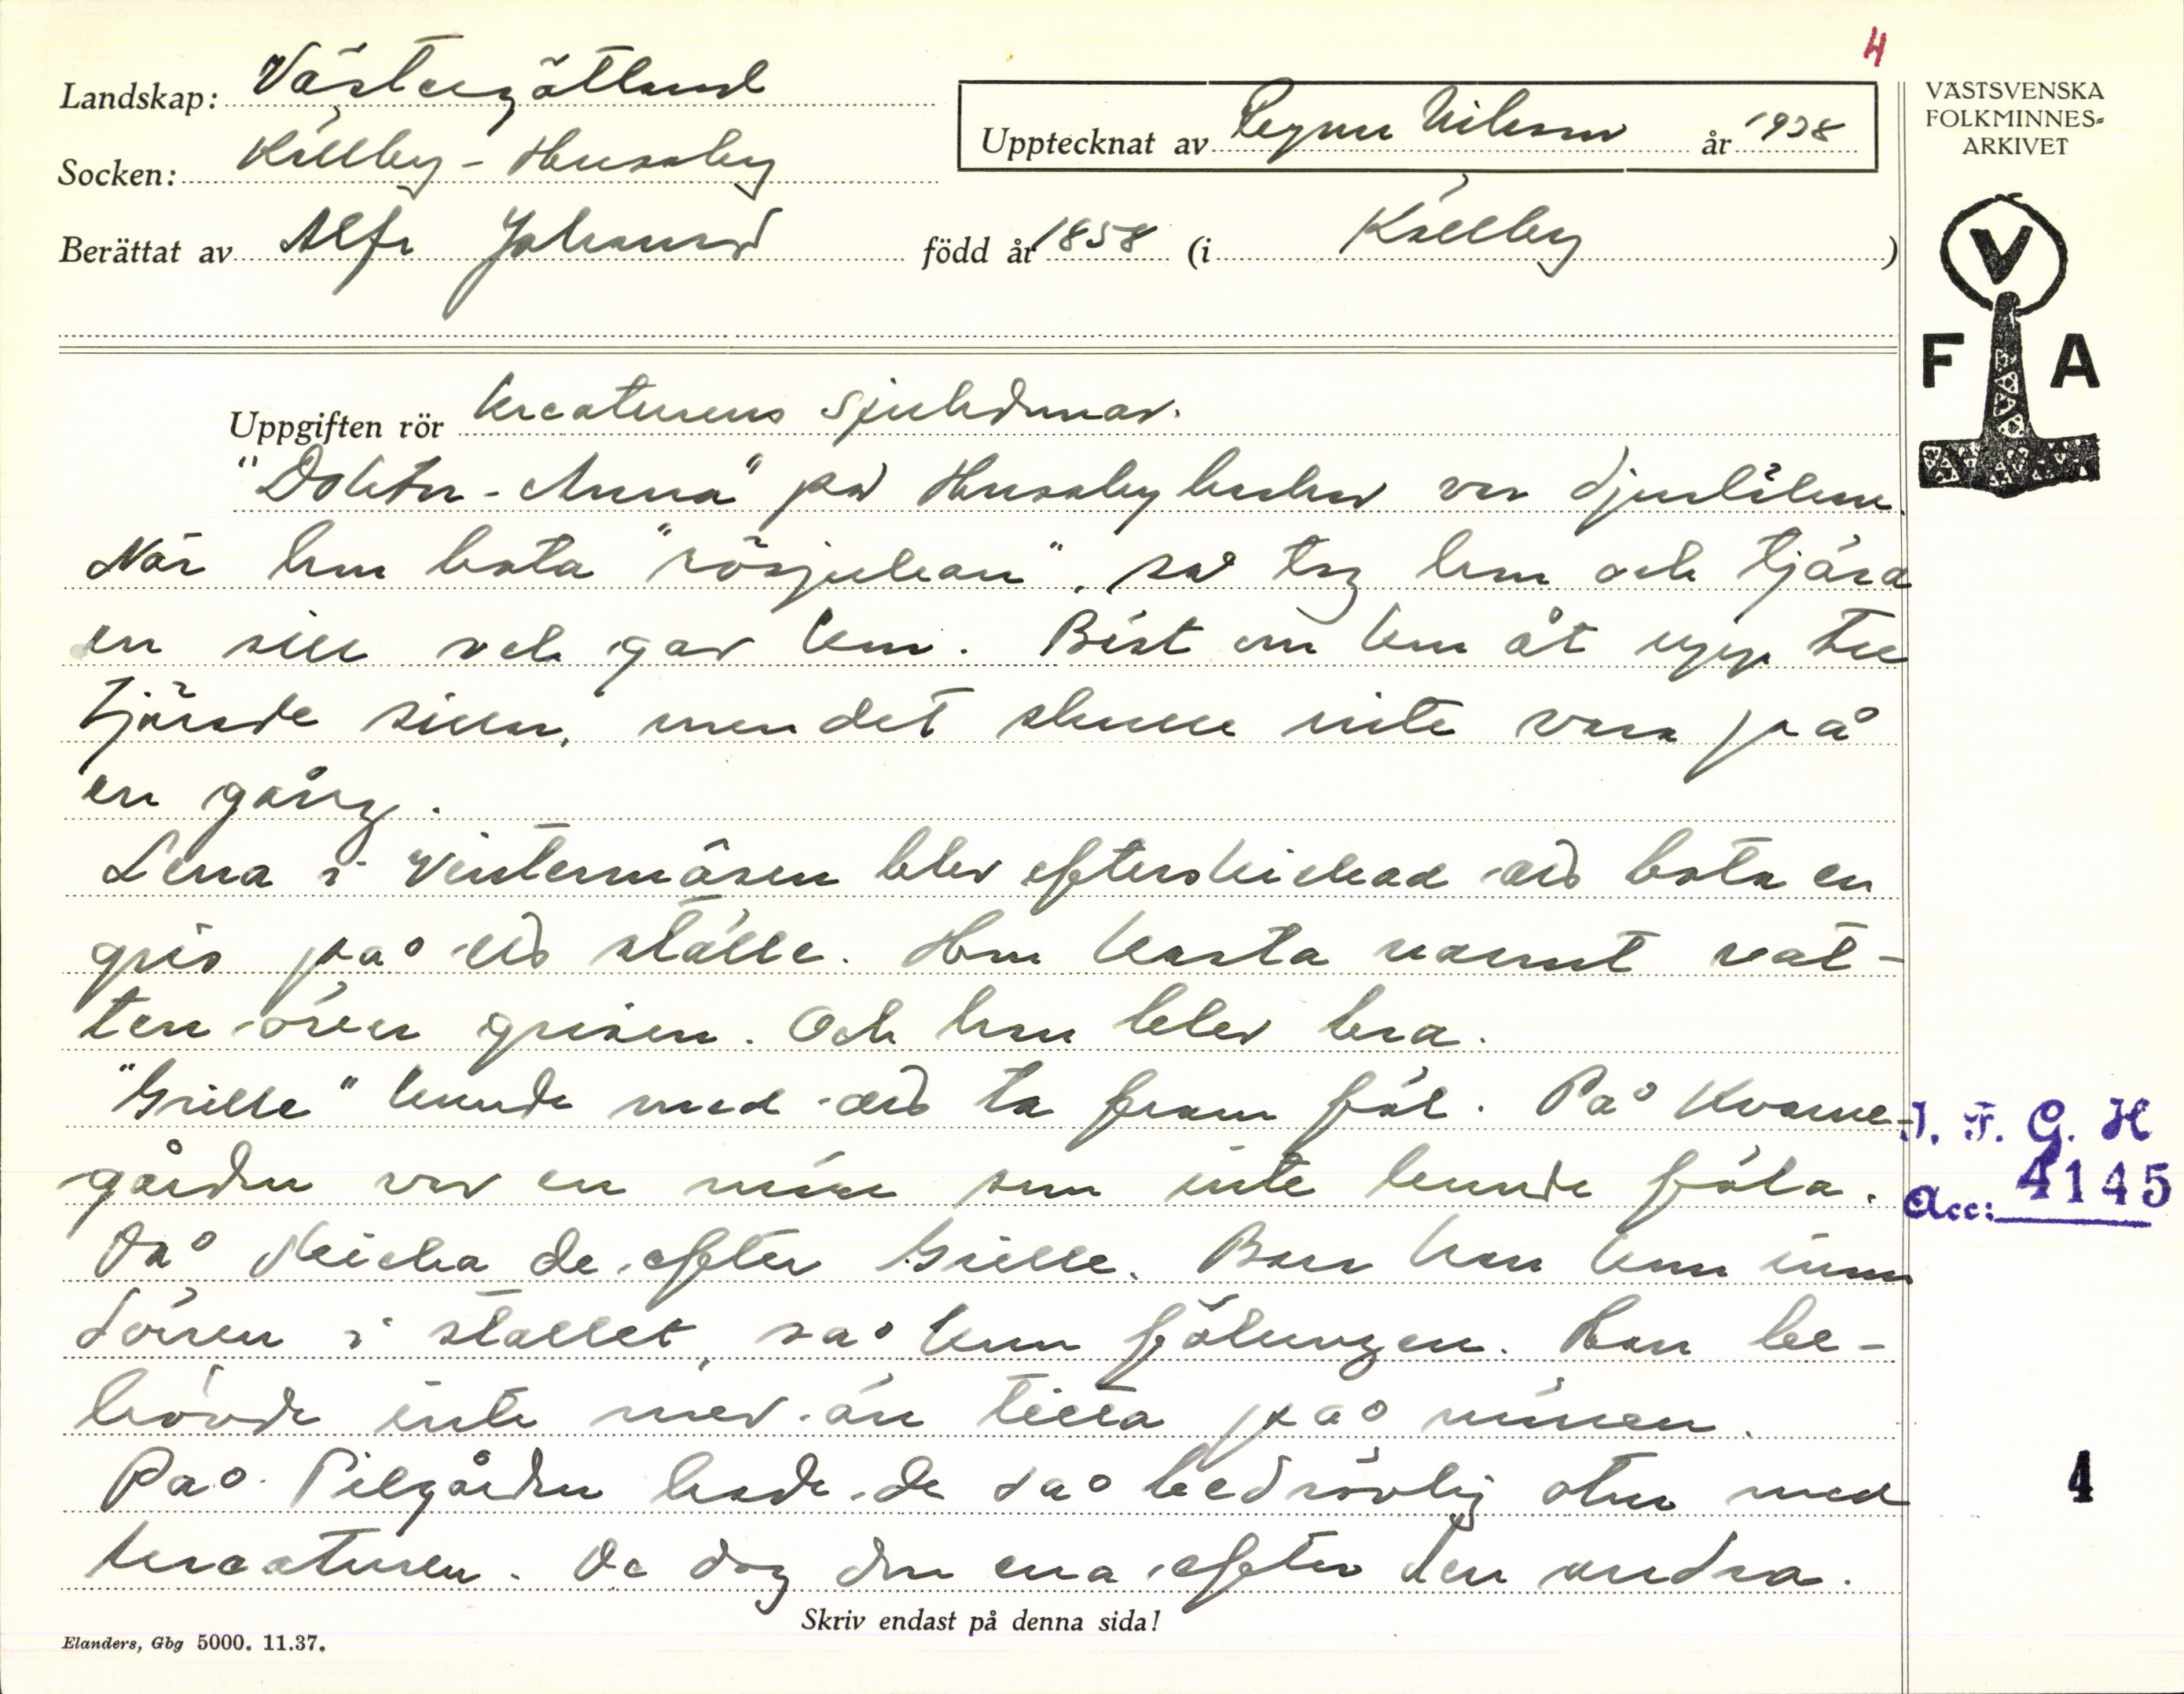 4
Landskap: Västergötland
Socken: Källby - Husaby
Upptecknat av Ragnar Nilsson år 1938
Berättat av Alfr Johansson född år 1858 (i Källby)
VÄSTSVENSKA
FOLKMINNES=
ARKIVET
V
F A
Uppgiften rör kreaturens sjukdomar.
"Doktor-Anna" på Husabybacken var djurläkare.
När hon bota "rösjukan", så tog hon och tjära
en sill och gav kon. Bäst om kon åt upp tre
tjärade sillar, men det skulle inte vara på
en gång.
Lena i Vintermåsen blev efterskickad att bota en
gris på ett ställe. Hon kasta varmt vat-
ten över grisen. Och han blev bra.
"Grille" kunde med att ta fram föl. På Kvarne-
gården var en märr som inte kunde föla.
Då skicka de efter Grille. Bara han kom innm
dörren i stallet, så kom fölungen. Han be-
hövde inte mer än titta på märren.
På Pilgården hade de så bedrövlig otur med
kreaturen. De dog den ena efter den andra.
J. F. G. H
Acc: 4145
4
Skriv endast på denna sida!
Elanders, Gbg 5000. 11.37.